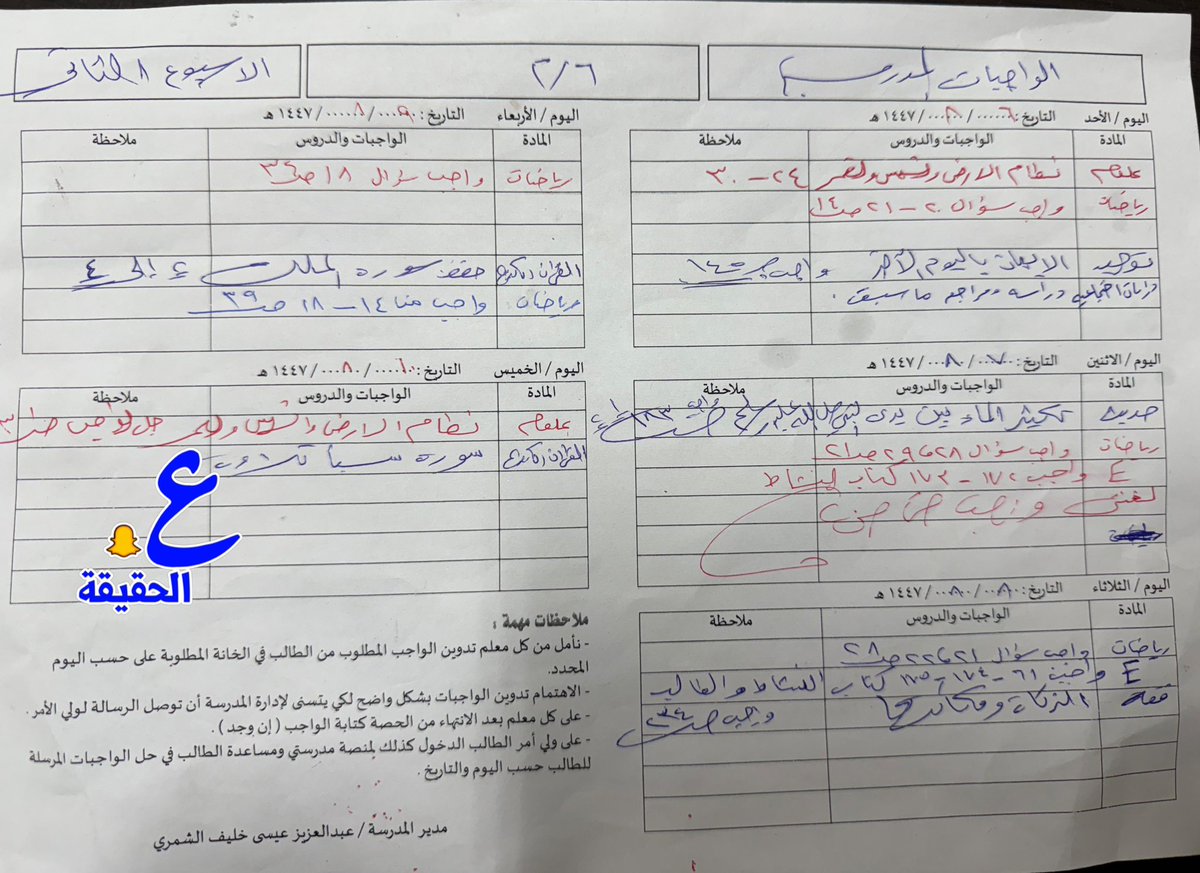 الواجبات المدرسية
٢/٦
الاسبوع الثاني
اليوم / الأحد التاريخ: ٦ / ٨ / ١٤٤٧ هـ
المادة الواجبات والدروس ملاحظة
علوم نظام الارض والشمس والقمر ٢٤ - ٣٠
رياضيات واجب سؤال ٢٠ - ٢١ ص ١٤
توحيد الايمان باليوم الآخر واجب
دراسات اجتماعية دراسة ومراجع ماسبق.
اليوم / الاثنين التاريخ: ٧ / ٨ / ١٤٤٧ هـ
المادة الواجبات والدروس ملاحظة
حديث تكثير الماء بين يدي النبي صلى الله عليه وسلم واجب
رياضيات واجب سؤال ٢٨ و ٢٩ ص ٢١
E واجب ١٧٢ - ١٧٣ كتاب النشاط
لغتي
اليوم / الثلاثاء التاريخ: ٨ / ٨ / ١٤٤٧ هـ
المادة الواجبات والدروس ملاحظة
رياضيات واجب سؤال ٢١ و ٢٢ ص ٢٨
E واجب ٦١ - ١٧٤ - ١٧٥ كتاب النشاط والطالب
فقه الزكاة ومكانتها واجب ص ٢٣٤
اليوم / الأربعاء التاريخ: ٩ / ٨ / ١٤٤٧ هـ
المادة الواجبات والدروس ملاحظة
رياضيات واجب سؤال ١٨ ص ٣٤
القران الكريم حفظ سورة الملك ٤ إلى ٤
رياضيات واجب من ١٤ - ١٨ ص ٣٩
اليوم / الخميس التاريخ: ١٠ / ٨ / ١٤٤٧ هـ
المادة الواجبات والدروس ملاحظة
علوم نظام الارض والشمس والقمر حل الواجب
القران الكريم سورة سبأ تلاوة
ع
الحقيقة
ملاحظات مهمة :
- نأمل من كل معلم تدوين الواجب المطلوب من الطالب في الخانة المطلوبة على حسب اليوم
المحدد.
- الاهتمام بتدوين الواجبات بشكل واضح لكي يتسنى لإدارة المدرسة أن توصل الرسالة لولي الأمر .
- على كل معلم بعد الانتهاء من الحصة كتابة الواجب ( إن وجد ) .
- على ولي أمر الطالب الدخول كذلك لمنصة مدرستي ومساعدة الطالب في حل الواجبات المرسلة
للطالب حسب اليوم والتاريخ .
مدير المدرسة / عبدالعزيز عيسى خليف الشمري